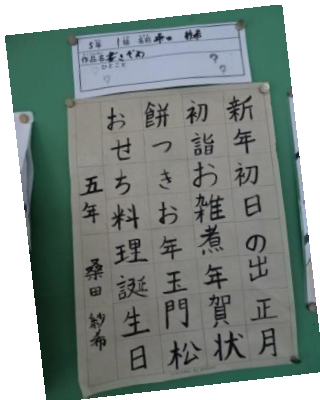 5年 1組 名前
作品名 書きぞめ
ひとこと
新年初日の出 正月
初詣お雑煮年賀状
餅つきお年玉門松
おせち料理誕生日
五年 桑田 紗希